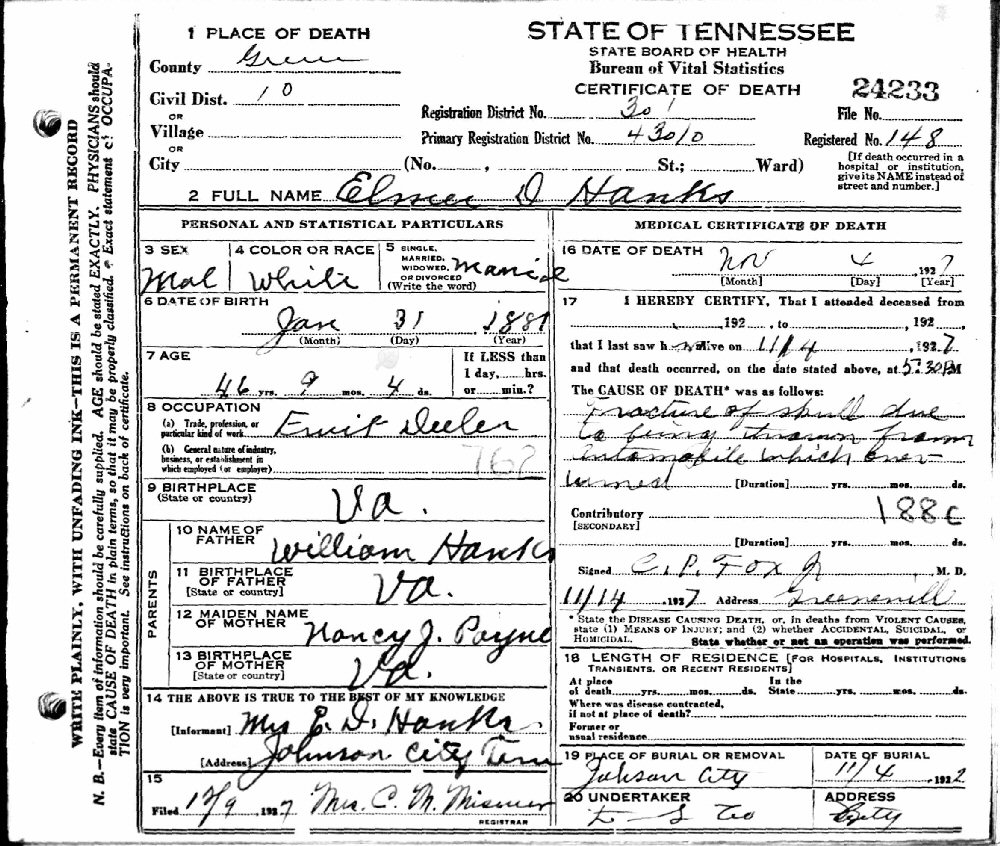 1 PLACE OF DEATH
County Green
Civil Dist. 10
OR
Village
OR
City (No. , St.; Ward)
STATE OF TENNESSEE
STATE BOARD OF HEALTH
Bureau of Vital Statistics
CERTIFICATE OF DEATH
24233
Registration District No. 301
File No.
Primary Registration District No. 43010
Registered No. 148
[If death occurred in a
hospital or institution,
give its NAME instead of
street and number.]
2 FULL NAME Elmer D Hanks
PERSONAL AND STATISTICAL PARTICULARS
3 SEX
Mal
4 COLOR OR RACE
White
5 SINGLE,
MARRIED,
WIDOWED,
OR DIVORCED
(Write the word)
6 DATE OF BIRTH
Jan 31 1881
(Month) (Day) (Year)
7 AGE
46 yrs. 9 mos. 4 ds.
If LESS than
1 day, hrs.
or min.?
8 OCCUPATION
(a) Trade, profession, or
particular kind of work
(b) General nature of industry,
business, or establishment in
which employed (or employer)
762
9 BIRTHPLACE
(State or country)
Va.
PARENTS
10 NAME OF
FATHER
William Hanks
11 BIRTHPLACE
OF FATHER
[State or country]
Va.
12 MAIDEN NAME
OF MOTHER
Nancy J. Payne
13 BIRTHPLACE
OF MOTHER
[State or country]
Va.
14 THE ABOVE IS TRUE TO THE BEST OF MY KNOWLEDGE
[Informant] Mrs E. D. Hanks
[Address] Johnson City Tenn
15
Filed 12/9, 1927 Mrs. C. M. Misemer
REGISTRAR
MEDICAL CERTIFICATE OF DEATH
16 DATE OF DEATH
Nov 4, 1927
[Month] [Day] [Year]
17 I HEREBY CERTIFY, That I attended deceased from
, 192 , to , 192
that I last saw h alive on 11/4, 1927
and that death occurred, on the date stated above, at 5:30 PM
The CAUSE OF DEATH* was as follows:
Fracture of skull due
to being thrown from
automobile which over
turned [Duration] yrs. mos. ds.
Contributory 188c
[SECONDARY]
[Duration] yrs. mos. ds.
Signed C. P. Fox Jr M. D.
11/14, 1927 Address Greenevill
* State the DISEASE CAUSING DEATH, or, in deaths from VIOLENT CAUSES,
state (1) MEANS OF INJURY; and (2) whether ACCIDENTAL, SUICIDAL, or
HOMICIDAL. State whether or not an operation was performed.
18 LENGTH OF RESIDENCE [FOR HOSPITALS, INSTITUTIONS
TRANSIENTS, OR RECENT RESIDENTS]
At place
of death yrs. mos. ds.
In the
State yrs. mos. ds.
Where was disease contracted,
if not at place of death?
Former or
usual residence
19 PLACE OF BURIAL OR REMOVAL
Johson City
DATE OF BURIAL
11/4, 1922
20 UNDERTAKER
ADDRESS
City
WRITE PLAINLY, WITH UNFADING INK—THIS IS A PERMANENT RECORD
N. B.—Every item of information should be carefully supplied. AGE should be stated EXACTLY. PHYSICIANS should
state CAUSE OF DEATH in plain terms, so that it may be properly classified. Exact statement of OCCUPA-
TION is very important. See instructions on back of certificate.